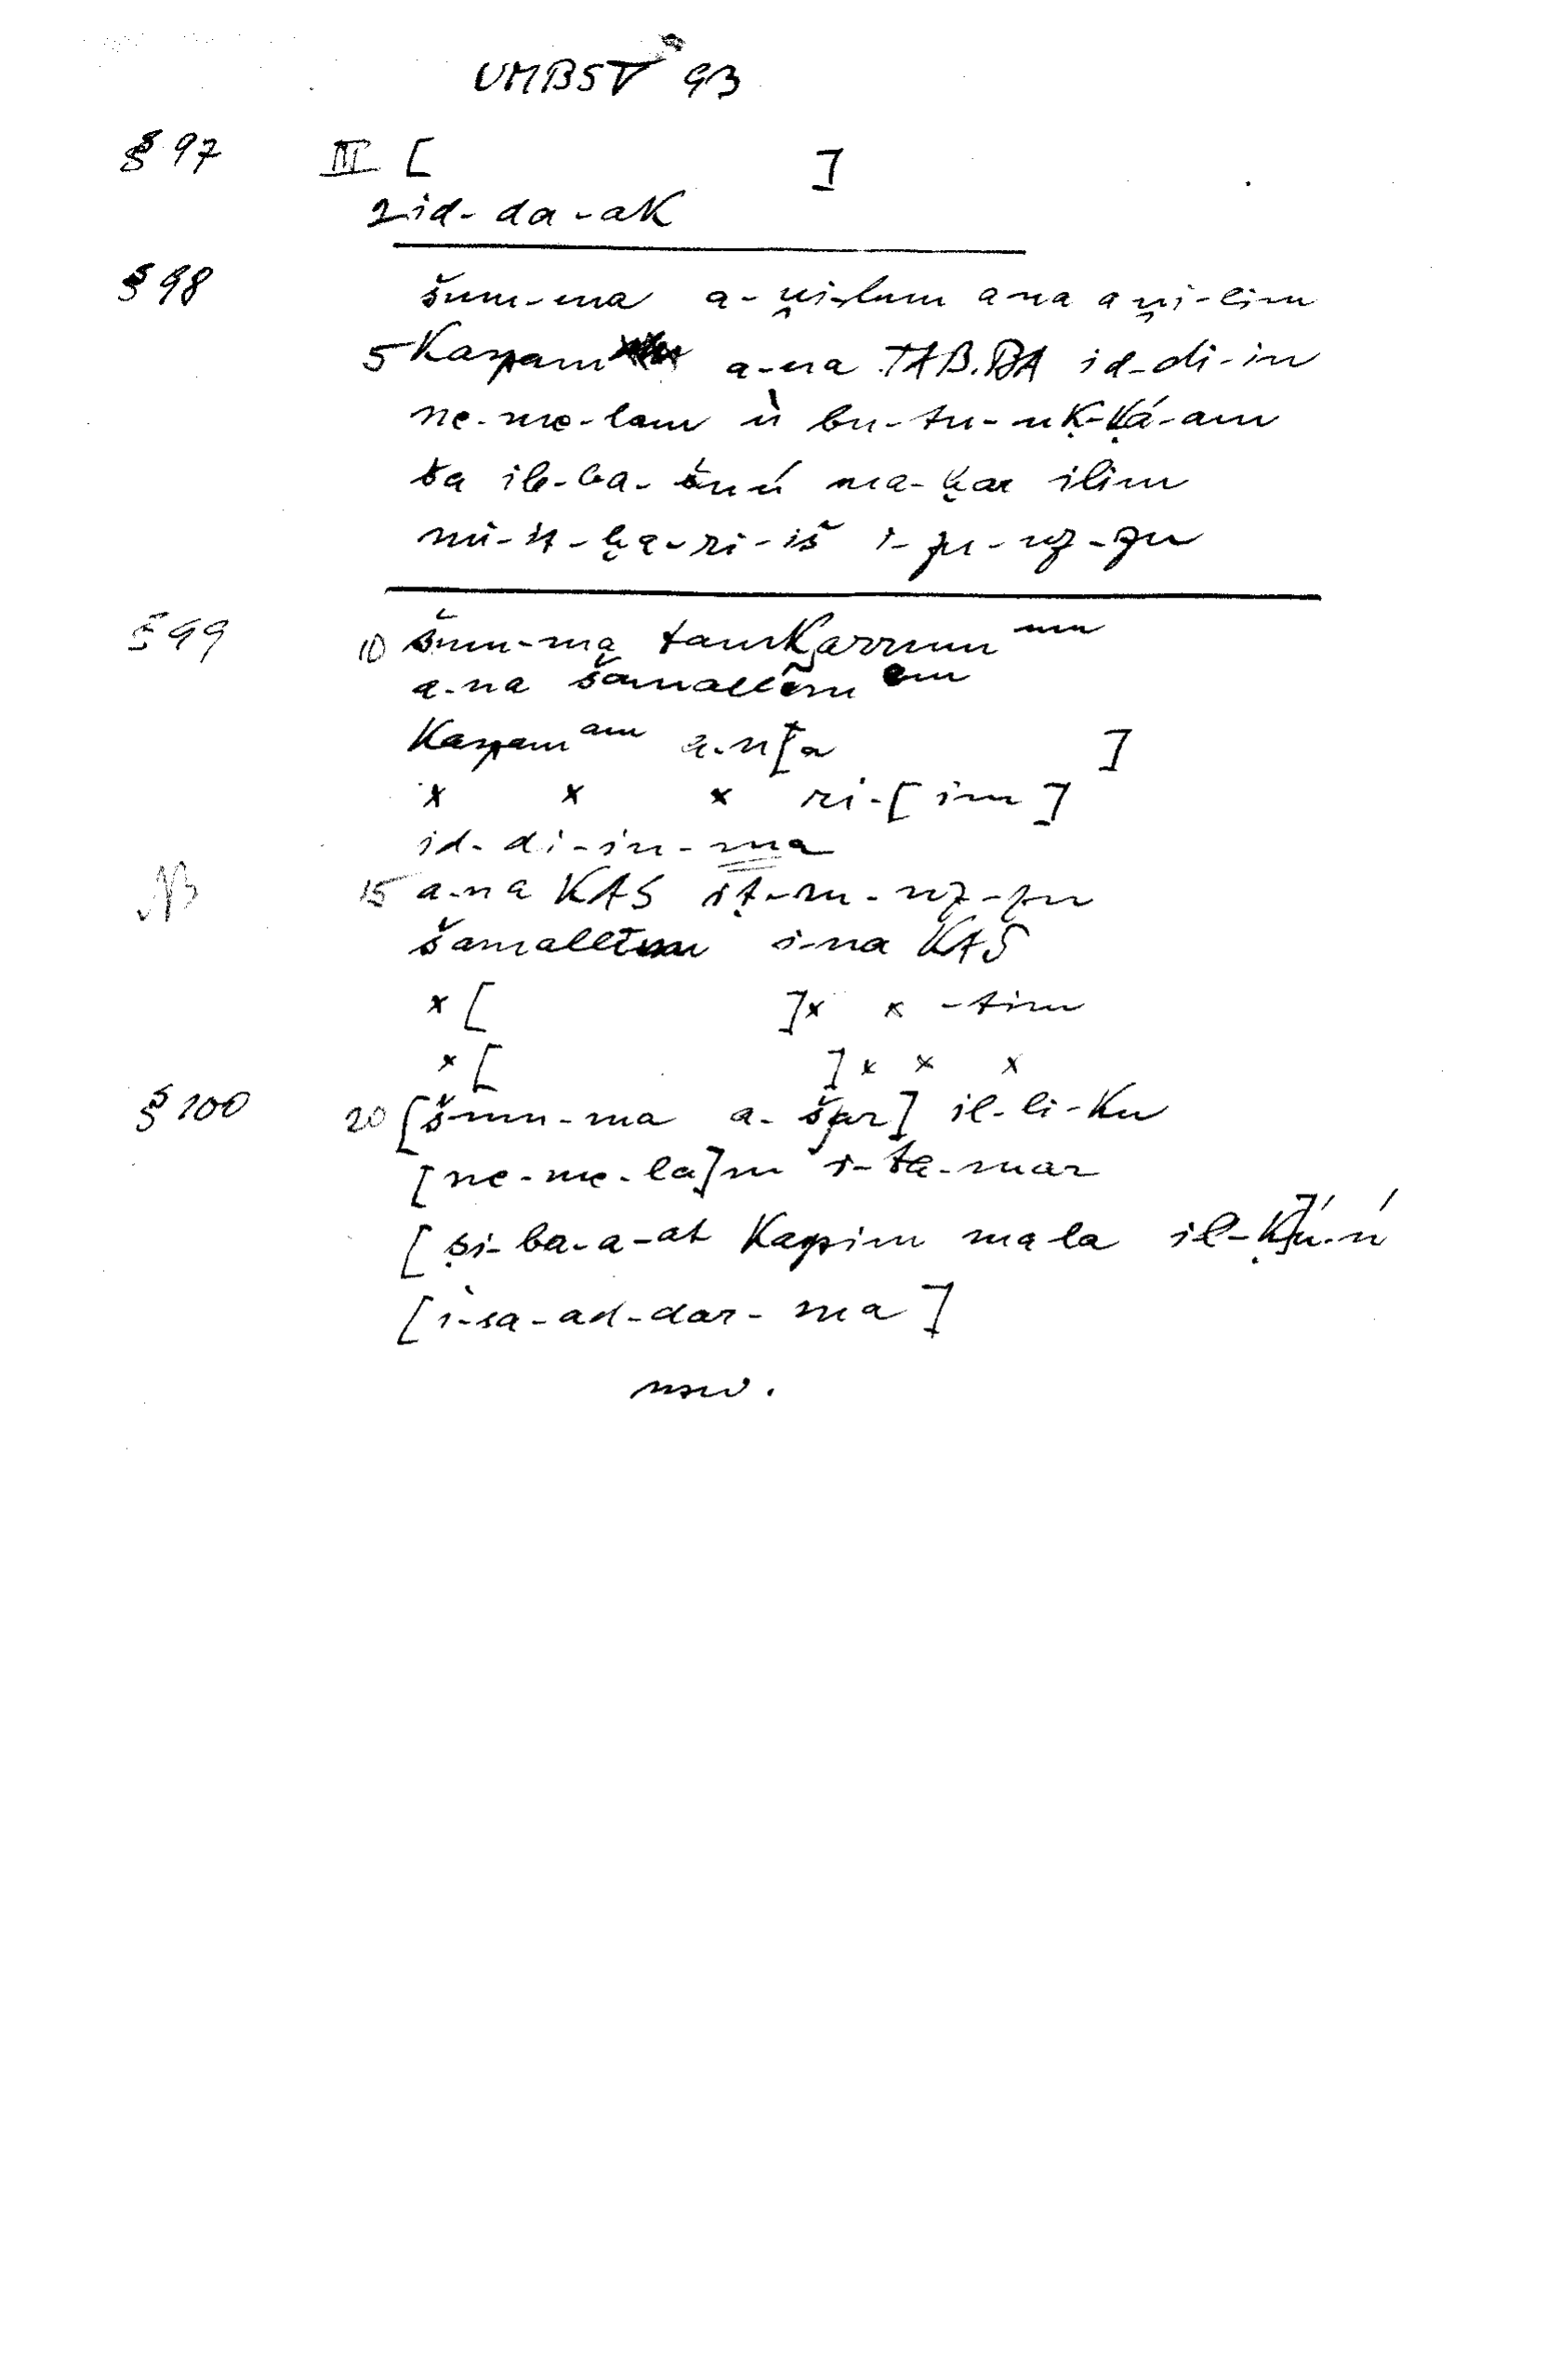 UMBS V 93
§ 97 III [ ]
2 id-da-ak
§ 98 šum-ma a-u̯i-lum a-na a u̯i-lim
5 Kaspam a-na TAB.BA id-di-in
ne-me-lam ù bu-tu-uḳ-ḳá-am
ša ib-ba-šu-ú ma-ḫar ilim
mi-it-ḫa-ri-iš i-zu-uz-zu
§ 99 10 šum-ma tamkarrum um
a-na šamallêm em
Kaspam am a-n[a ]
x x x ri-[im]
id-di-in-ma
NB 15 a-na KAS iṭ-ru-uz-zu
šamallûm i-na KAS
x [ ] x x -tim
x [ ] x x x
§ 100 20 [šum-ma a-šar] il-li-ku
[ne-me-la]m i-ta-mar
[ṣi-ba-a-at Kaspim ma la il-ḳ]ú-ú
[i-sa-ad-dar-ma]
usw.